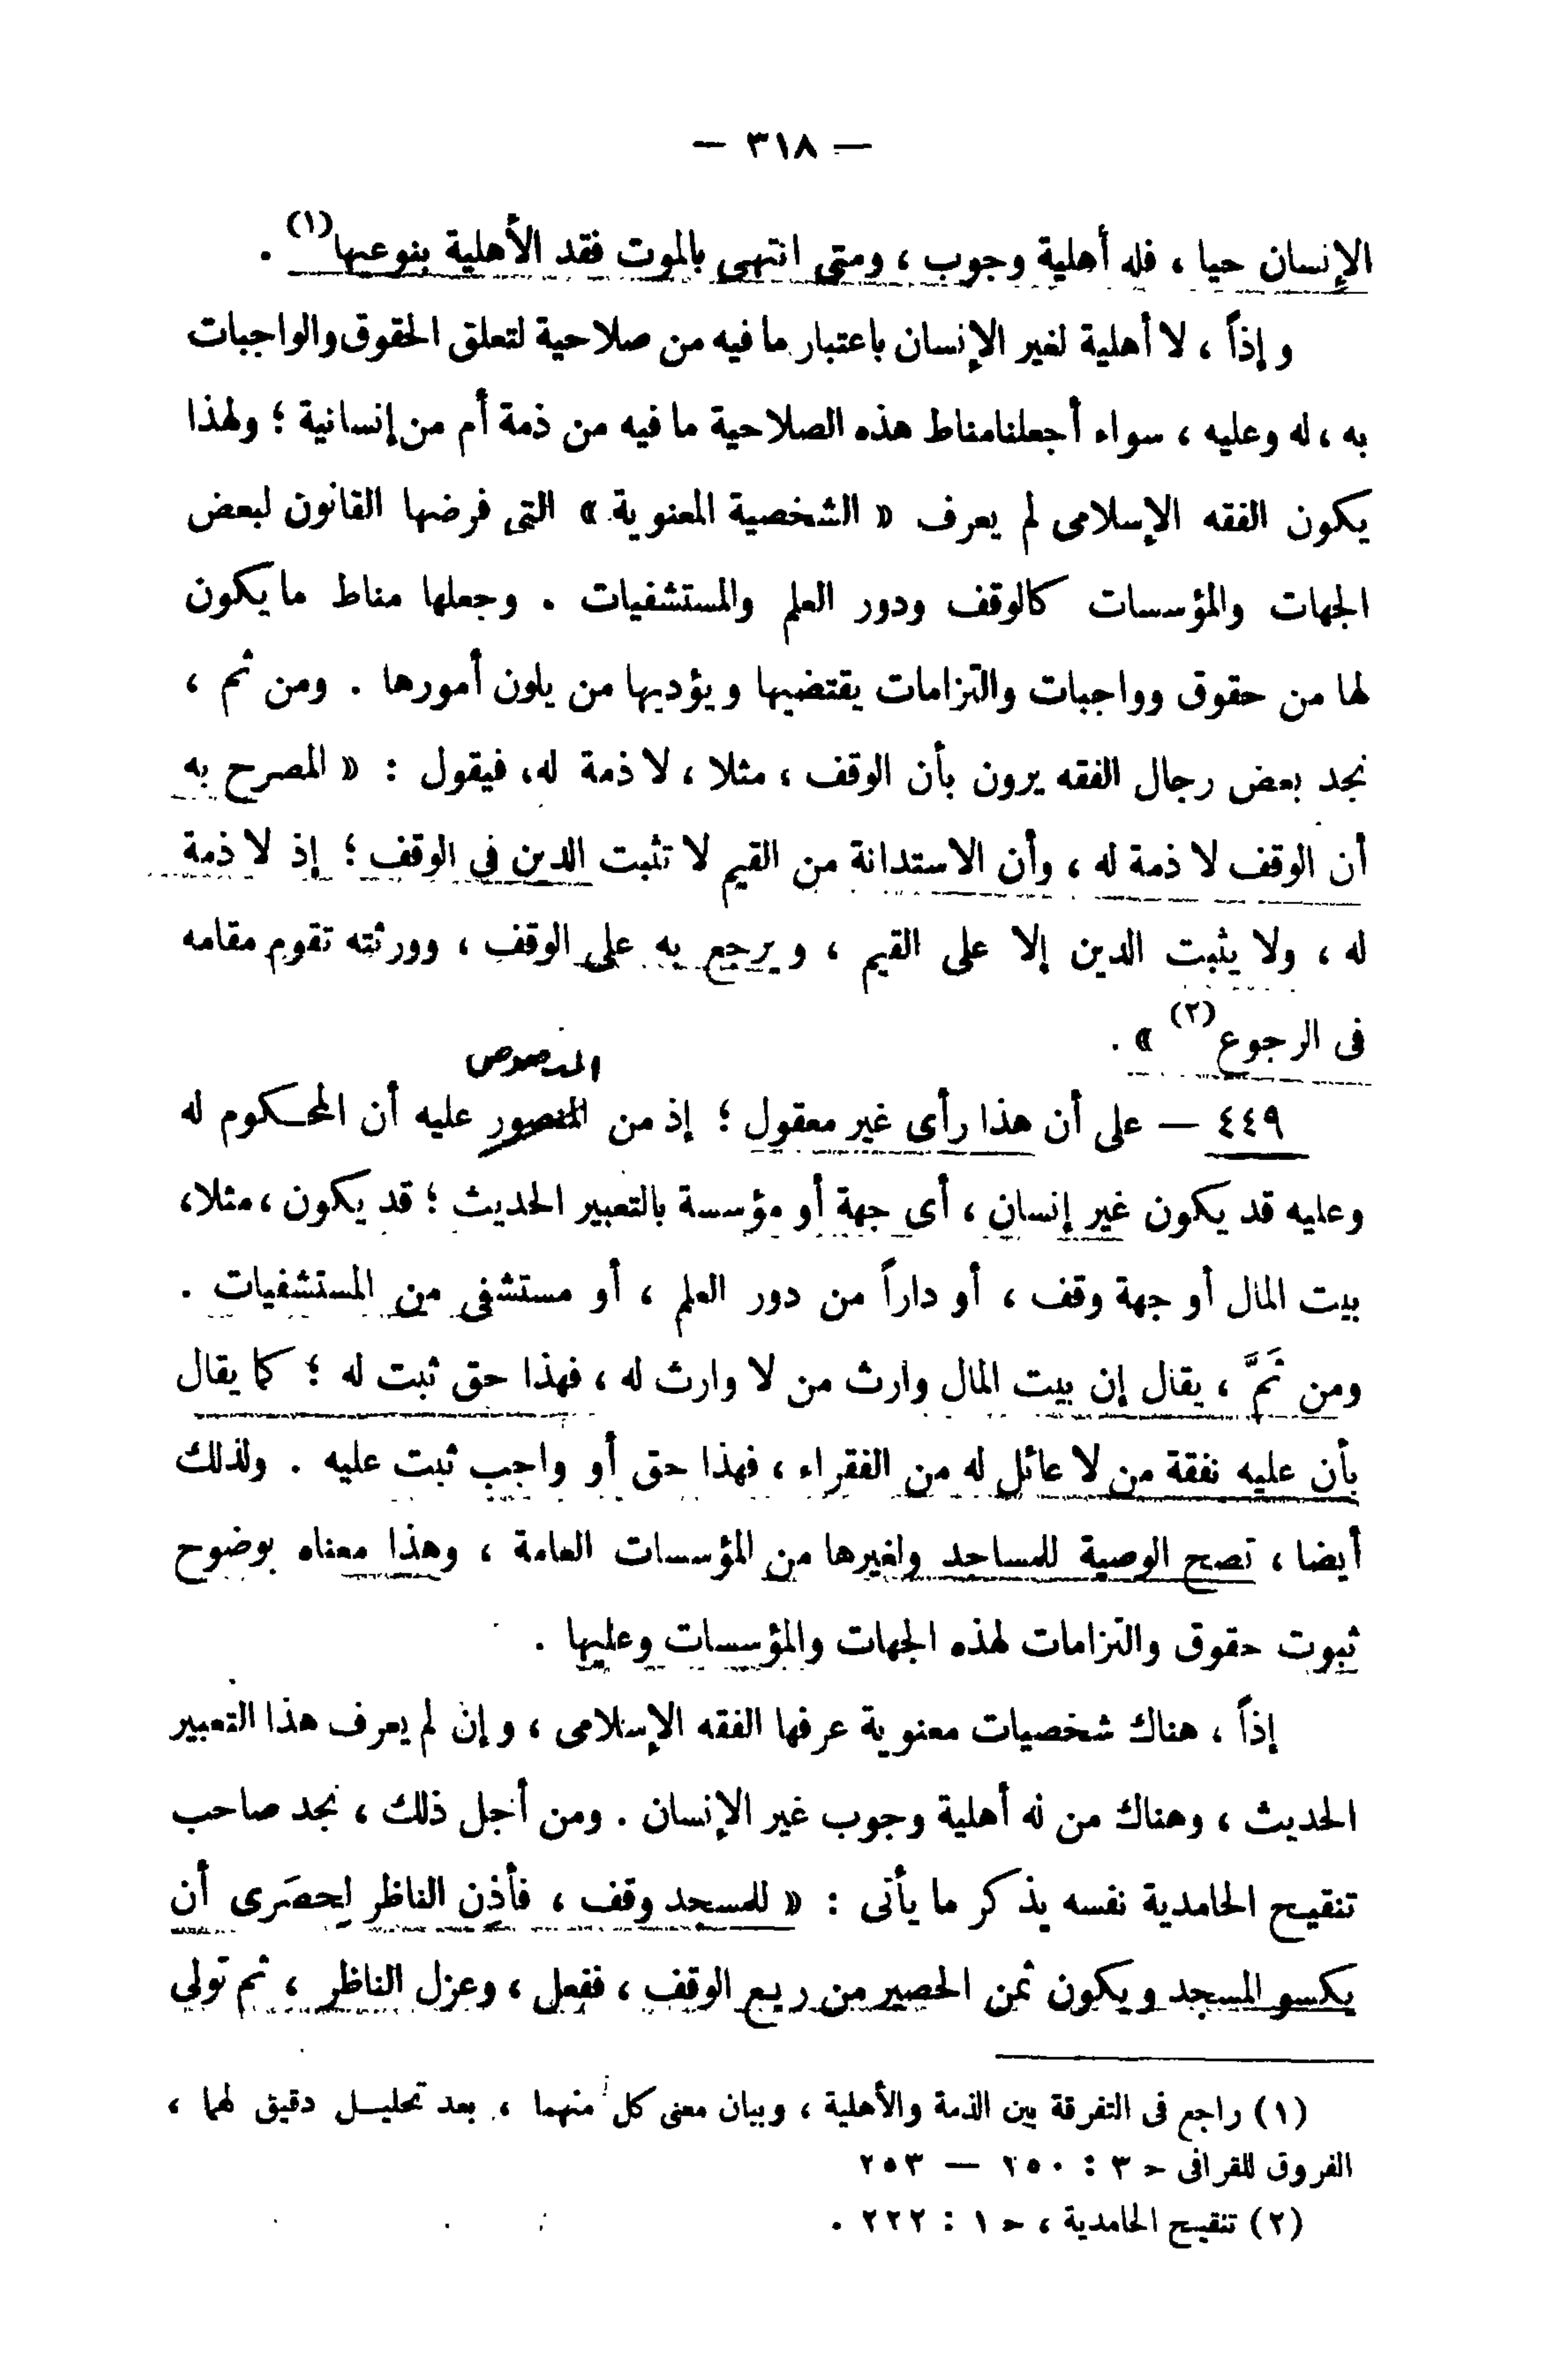 — ٣١٨ —
الإنسان حيا ، فله أهلية وجوب ، ومتى انتهى بالموت فقد الأهلية بنوعيها (١) .
وإذاً ، لا أهلية لغير الإنسان باعتبار ما فيه من صلاحية لتعلق الحقوق والواجبات
به ، له وعليه ، سواء أجعلنا مناط هذه الصلاحية ما فيه من ذمة أم من إنسانية ؛ ولهذا
يكون الفقه الإسلامى لم يعرف « الشخصية المعنوية » التى فرضها القانون لبعض
الجهات والمؤسسات كالوقف ودور العلم والمستشفيات . وجعلها مناط ما يكون
لها من حقوق وواجبات والتزامات يقتضيها ويؤديها من يلون أمورها . ومن ثم ،
نجد بعض رجال الفقه يرون بأن الوقف ، مثلا ، لا ذمة له ، فيقول : « المصرح به
أن الوقف لا ذمة له ، وأن الاستدانة من القيم لا تثبت الدين فى الوقف ؛ إذ لا ذمة
له ، ولا يثبت الدين إلا على القيم ، ويرجع به على الوقف ، وورثته تقوم مقامه
فى الرجوع (٢) » .
المنصوص
٤٤٩ — على أن هذا رأى غير معقول ؛ إذ من المنصور عليه أن المحكوم له
وعليه قد يكون غير إنسان ، أى جهة أو مؤسسة بالتعبير الحديث ؛ قد يكون ، مثلا ،
بيت المال أو جهة وقف ، أو داراً من دور العلم ، أو مستشفى من المستشفيات .
ومن ثَمَّ ، يقال إن بيت المال وارث من لا وارث له ، فهذا حق ثبت له ؛ كما يقال
بأن عليه نفقة من لا عائل له من الفقراء ، فهذا حق أو واجب ثبت عليه . ولذلك
أيضا ، تصح الوصية للمساجد ولغيرها من المؤسسات العامة ، وهذا معناه بوضوح
ثبوت حقوق والتزامات لهذه الجهات والمؤسسات وعليها .
إذاً ، هناك شخصيات معنوية عرفها الفقه الإسلامى ، وإن لم يعرف هذا التعبير
الحديث ، وهناك من له أهلية وجوب غير الإنسان . ومن أجل ذلك ، نجد صاحب
تنقيح الحامدية نفسه يذكر ما يأتى : « للمسجد وقف ، فأذن الناظر لِحصَرى أن
يكسو المسجد ويكون ثمن الحصير من ريع الوقف ، ففعل ، وعزل الناظر ، ثم تولى
(١) راجع فى التفرقة بين الذمة والأهلية ، وبيان معنى كل منهما ، بعد تحليل دقيق لهما ،
الفروق للقرافى ح ٣ : ٢٥٠ — ٢٥٣
(٢) تنقيح الحامدية ، ح ١ : ٢٢٢ .